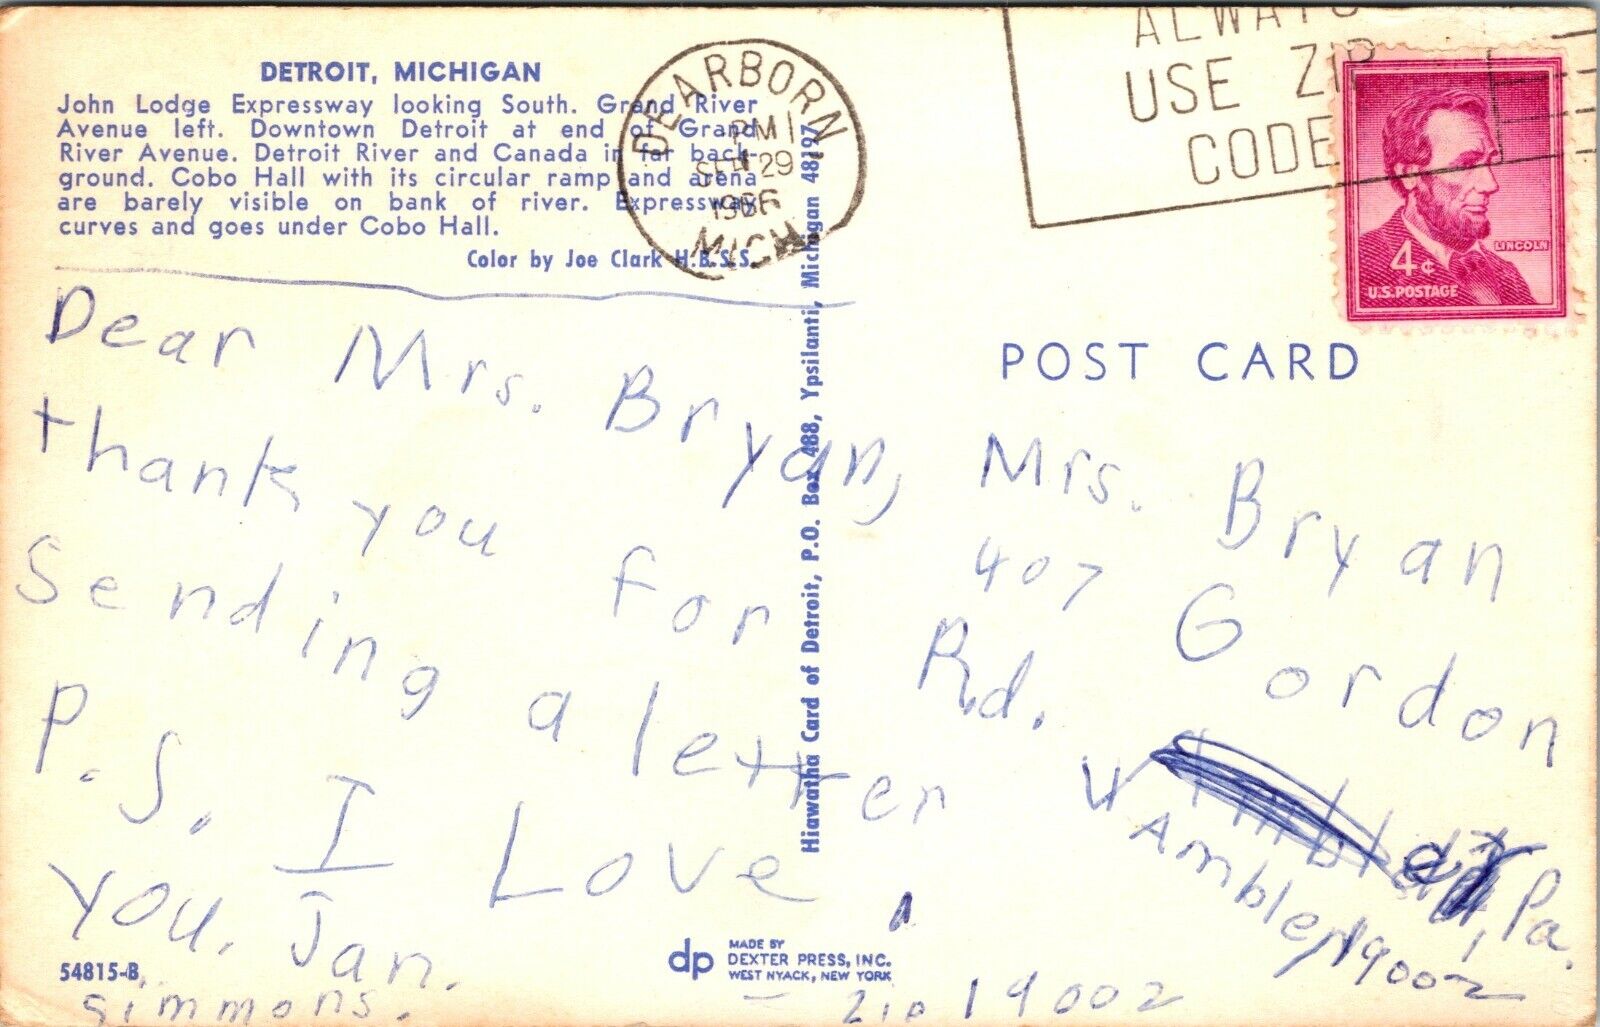 DETROIT, MICHIGAN
John Lodge Expressway looking South. Grand River
Avenue left. Downtown Detroit at end of Grand
River Avenue. Detroit River and Canada in far back-
ground. Cobo Hall with its circular ramp and arena
are barely visible on bank of river. Expressway
curves and goes under Cobo Hall.
Color by Joe Clark H.B.S.S.
Dear Mrs. Bryan,
thank you for
Sending a letter
P.S. I Love
you. Jan.
Simmons.
54815-B
Hiawatha Card of Detroit, P.O. Box 488, Ypsilanti, Michigan 48197
dp
MADE BY
DEXTER PRESS, INC.
WEST NYACK, NEW YORK
DEARBORN,
PM 1
SEP 29
1966
MICH.
ALWAYS
USE ZIP
CODE
LINCOLN
4¢
U.S. POSTAGE
POST CARD
Mrs. Bryan
407 Gordon
Rd.
Ambler, Pa.
19002
Zip 19002